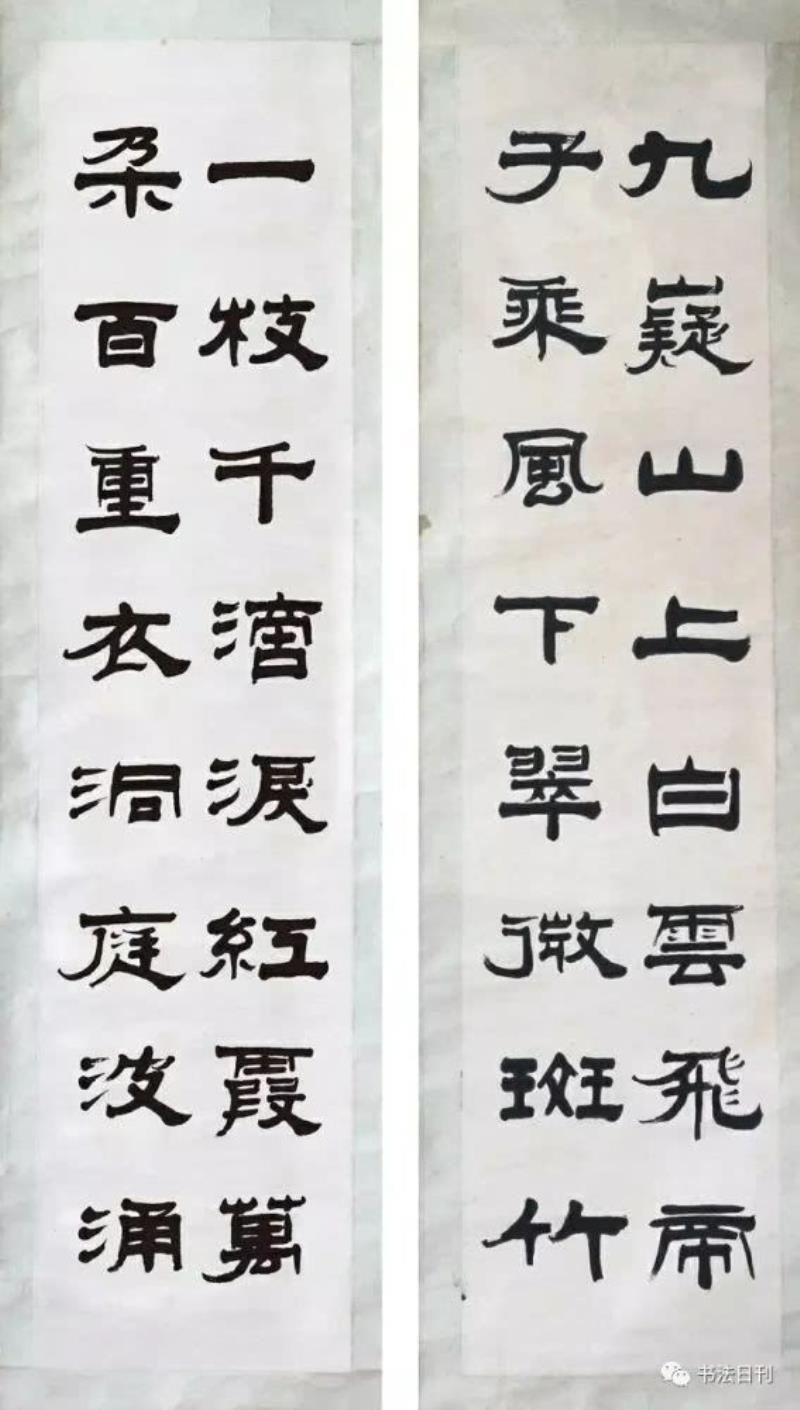 九嶷山上白雲飛帝
子乘風下翠微斑竹
一枝千滴淚紅霞萬
朵百重衣洞庭波涌
书法日刊